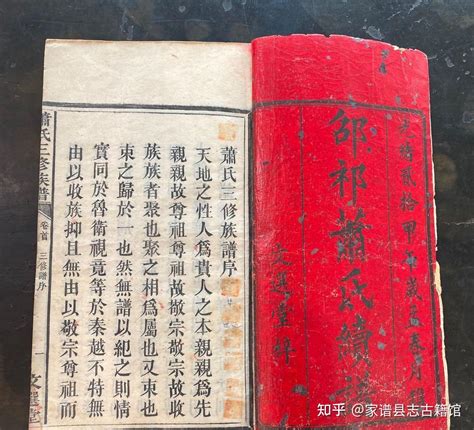 貳拾甲午歲孟春月
邵祁蕭氏續譜
文選堂梓
蕭氏三修族譜序
天地之性人爲貴人之本親親爲先
親親故尊祖尊祖故敬宗敬宗故收
族族者聚也聚之相爲屬也又爲
束之歸於一也然無譜以紀之則情
實同於魯衛視竟等於秦越不特無
由以收族抑且無由以敬宗尊祖而
蕭氏三修族譜
卷首
三修譜序
一
文選堂
知乎 @家谱县志古籍馆